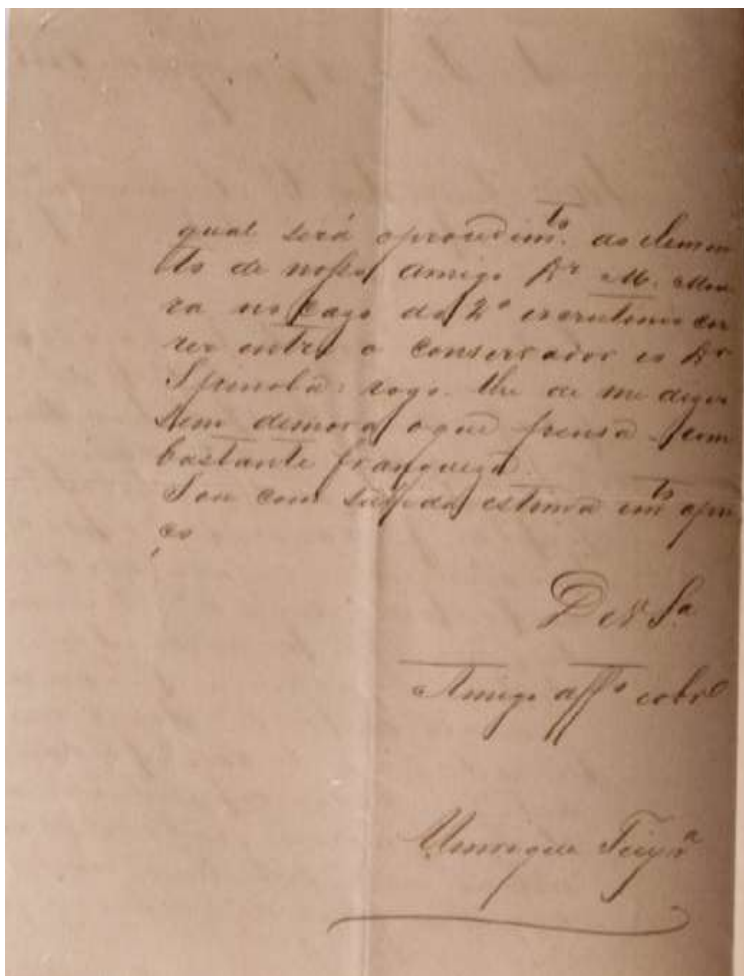 qual será oprocedimto. do elemen
to de nosso amigo Dr M. Mou
ra no caso do 2º escrutonio cor
rer entre o conservador eo Dr
Spinola: rogo-lhe de me dizer
sem demora oque pensa com
bastante franqueza.
Sou com subida estima emto apre
ço
De V. Sa
Amigo affo eobro
Henrique Teixra